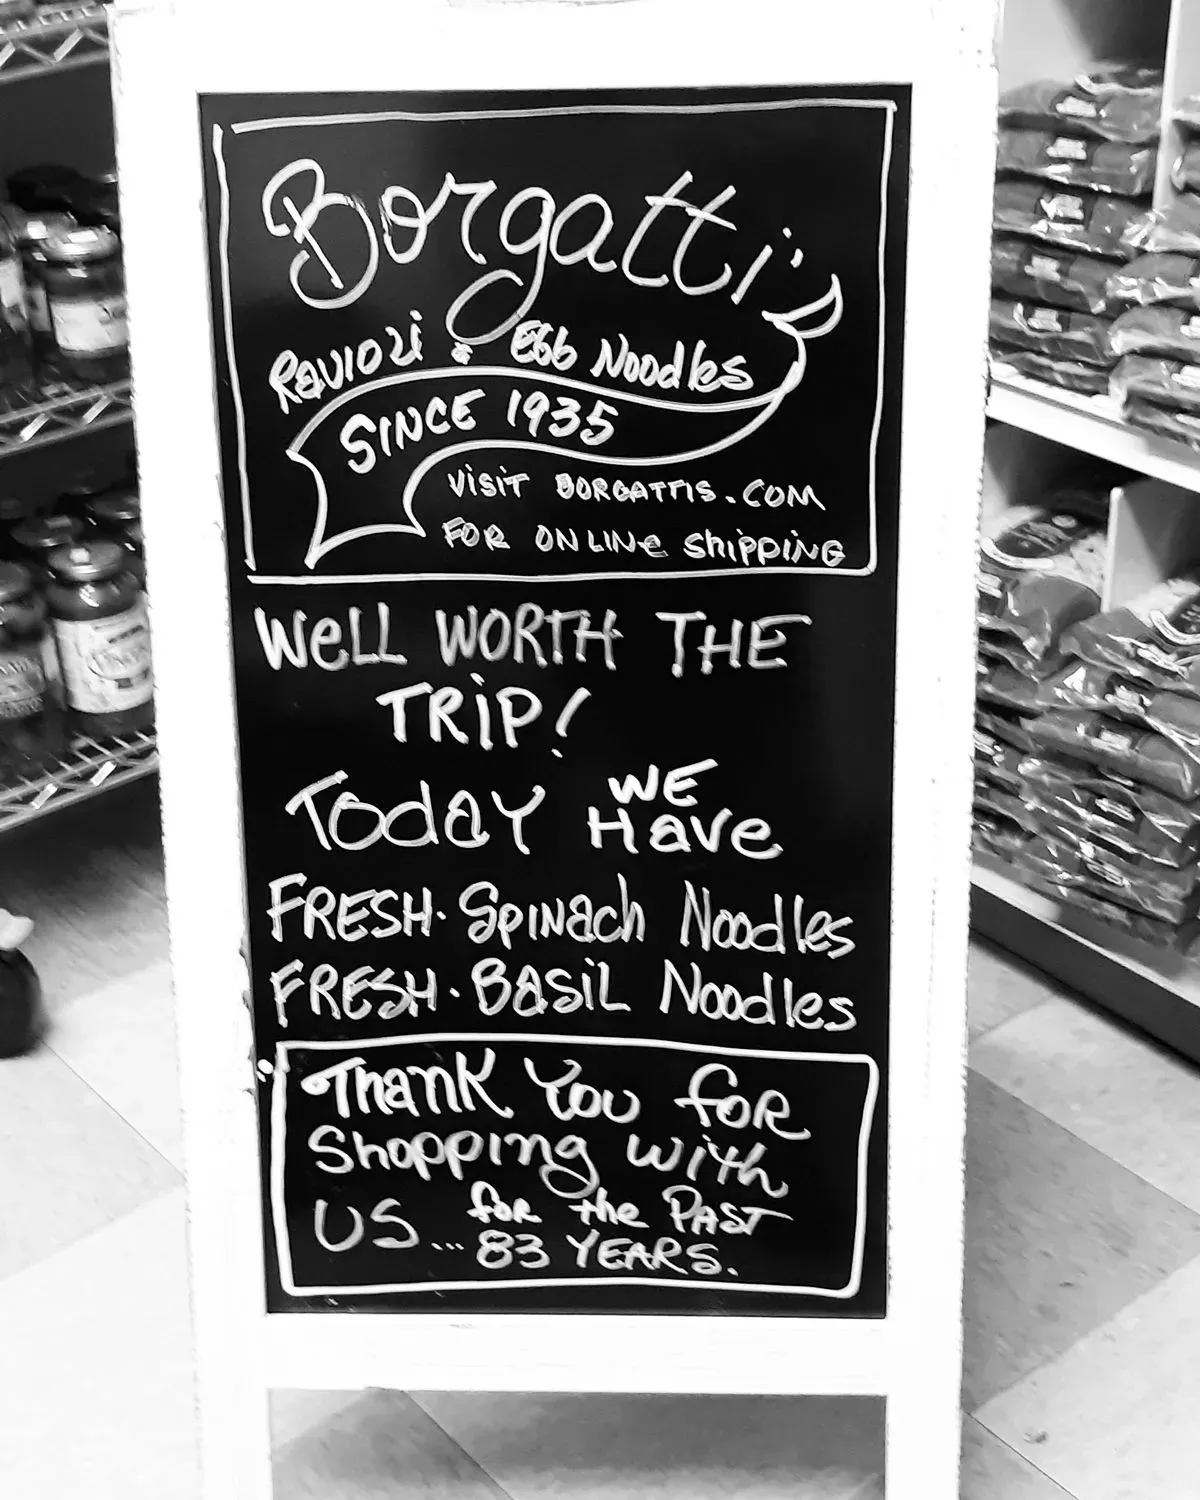 Borgatti's
Ravioli & Egg Noodles
SINCE 1935
VISIT BORGATTIS.COM
FOR ONLINE SHIPPING
WELL WORTH THE
TRIP!
TODAY WE
HAVE
FRESH. SPINACH NOODLES
FRESH. BASIL NOODLES
THANK YOU FOR
SHOPPING WITH
US... for the PAST
83 YEARS.